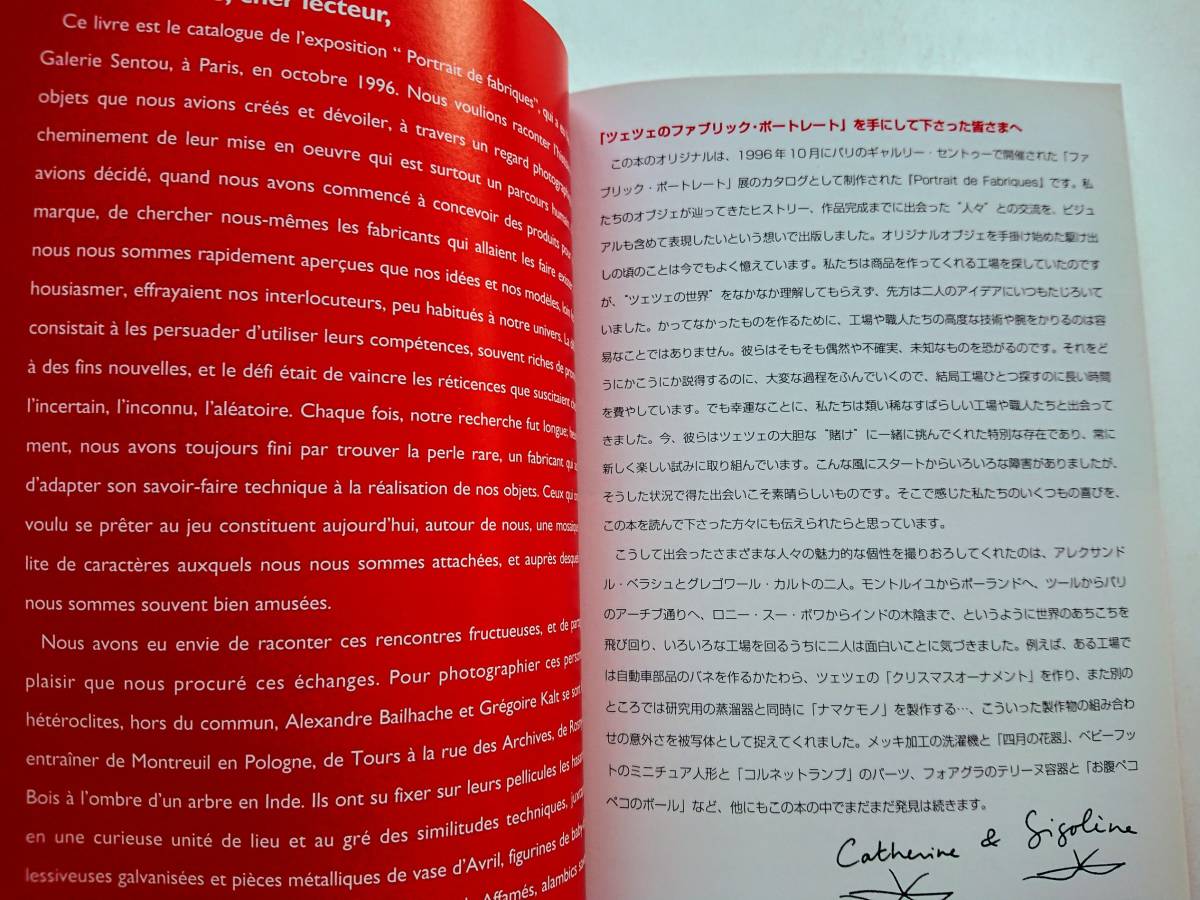 cher lecteur,
Ce livre est le catalogue de l'exposition “ Portrait de fabriques”, qui a
Galerie Sentou, à Paris, en octobre 1996. Nous voulions raconter
objets que nous avions créés et dévoiler, à travers un regard
cheminement de leur mise en oeuvre qui est surtout un parcours
avions décidé, quand nous avons commencé à concevoir des produits
marque, de chercher nous-mêmes les fabricants qui allaient les faire
nous nous sommes rapidement aperçues que nos idées et nos modèles,
housiasmer, effrayaient nos interlocuteurs, peu habitués à notre univers. La
consistait à les persuader d'utiliser leurs compétences, souvent riches de
à des fins nouvelles, et le défi était de vaincre les réticences que suscitaient
l'incertain, l'inconnu, l'aléatoire. Chaque fois, notre recherche fut longue;
ment, nous avons toujours fini par trouver la perle rare, un fabricant qui
d'adapter son savoir-faire technique à la réalisation de nos objets. Ceux qui
voulu se prêter au jeu constituent aujourd'hui, autour de nous, une
lite de caractères auxquels nous nous sommes attachées, et auprès
nous sommes souvent bien amusées.
Nous avons eu envie de raconter ces rencontres fructueuses, et de
plaisir que nous procuré ces échanges. Pour photographier ces
hétéroclites, hors du commun, Alexandre Bailhache et Grégoire Kalt se
entraîner de Montreuil en Pologne, de Tours à la rue des Archives, de
Bois à l'ombre d'un arbre en Inde. Ils ont su fixer sur leurs pellicules les
en une curieuse unité de lieu et au gré des similitudes techniques,
lessiveuses galvanisées et pièces métalliques de vase d'Avril, figurines de
Affamés, alambics
「ツェツェのファブリック・ポートレート」を手にして下さった皆さまへ
この本のオリジナルは、1996年10月にパリのギャルリー・セントゥーで開催された「ファ
ブリック・ポートレート」展のカタログとして制作された『Portrait de Fabriques』です。私
たちのオブジェが辿ってきたヒストリー、作品完成までに出会った“人々”との交流を、ビジュ
アルも含めて表現したいという想いで出版しました。オリジナルオブジェを手掛け始めた駆け出
しの頃のことは今でもよく憶えています。私たちは商品を作ってくれる工場を探していたのです
が、“ツェツェの世界”をなかなか理解してもらえず、先方は二人のアイデアにいつもたじろいて
いました。かってなかったものを作るために、工場や職人たちの高度な技術や腕をかりるのは容
易なことではありません。彼らはそもそも偶然や不確実、未知なものを恐がるのです。それをど
うにかこうにか説得するのに、大変な過程をふんでいくので、結局工場ひとつ探すのに長い時間
を費やしています。でも幸運なことに、私たちは類い稀なすばらしい工場や職人たちと出会って
きました。今、彼らはツェツェの大胆な“賭け”に一緒に挑んでくれた特別な存在であり、常に
新しく楽しい試みに取り組んでいます。こんな風にスタートからいろいろな障害がありましたが、
そうした状況で得た出会いこそ素晴らしいものです。そこで感じた私たちのいくつもの喜びを、
この本を読んで下さった方々にも伝えられたらと思っています。
こうして出会ったさまざまな人々の魅力的な個性を撮りおろしてくれたのは、アレクサンド
ル・ベラシュとグレゴワール・カルトの二人。モントルイユからポーランドへ、ツールからパリ
のアーチブ通りへ、ロニー・スー・ボワからインドの木陰まで、というように世界のあちこちを
飛び回り、いろいろな工場を回るうちに二人は面白いことに気づきました。例えば、ある工場で
は自動車部品のバネを作るかたわら、ツェツェの「クリスマスオーナメント」を作り、また別の
ところでは研究用の蒸溜器と同時に「ナマケモノ」を製作する…、こういった製作物の組み合わ
せの意外さを被写体として捉えてくれました。メッキ加工の洗濯機と「四月の花器」、ベビーフッ
トのミニチュア人形と「コルネットランプ」のパーツ、フォアグラのテリーヌ容器と「お腹ペコ
ペコのボール」など、他にもこの本の中でまだまだ発見は続きます。
Catherine & Sigolène